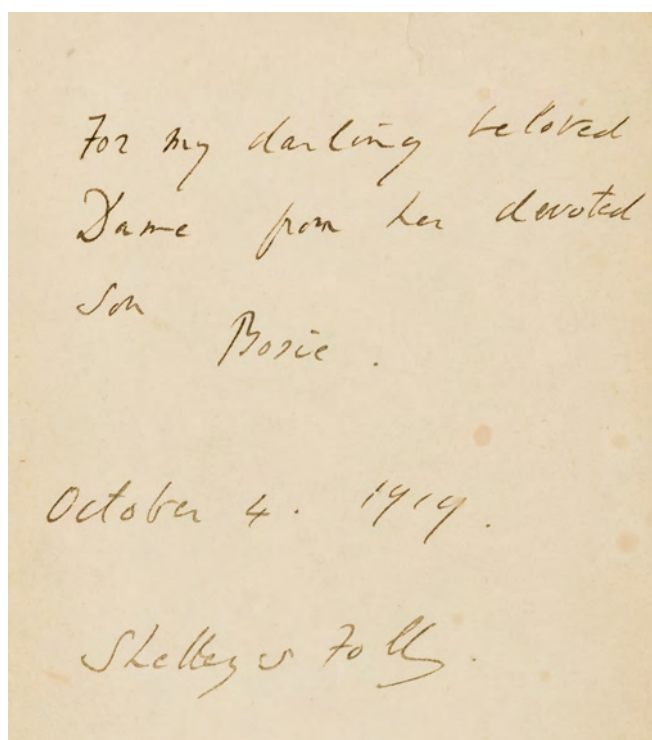 For my darling beloved
Dame from her devoted
son
Bosie.
October 4. 1919.
Shelley's Folly.